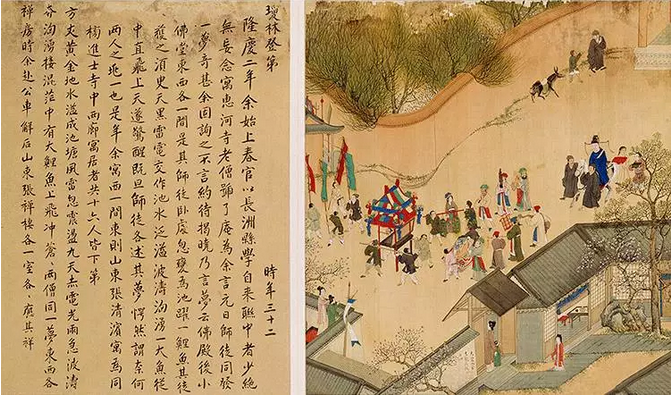 瓊林登第
時年三十二
隆慶二年余始上春官以長洲縣學自来聯中者少絶
無妄念寓惠河寺老僧號了庵為余言元日師徒同發
一夢奇甚余因詢之不言約待揭曉乃言夢云佛殿後小
佛堂東西各一間是其師徒卧處忽變為池躍一鯉魚其徒
之須臾天黑雷電交作池水泛溢波濤洶湧一大魚從
中直飛上天遂驚醒旣旦師徒各述其夢愕然謂奈何
兩人之兆一也是年余寓西一間東則山東張清濱寓焉同
榜進士寺中兩廊寓居者共十六人皆下第
方丈黄金地水溢成池塘風雷忽震盪九天赤電光雨急波濤
奔洶湧棲混茫中有大鯉魚上飛冲蒼〻兩僧同一夢東西各
禅房時余赴公車解后山東張祥棲各一室各〻應其祥